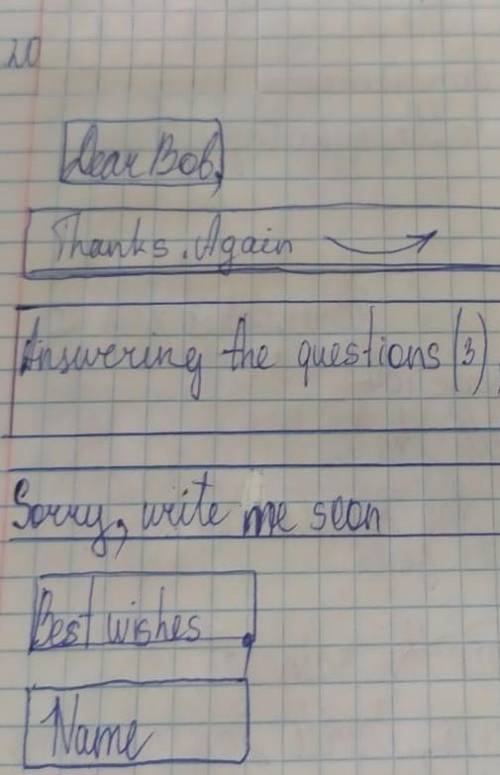 20
Dear Bob,
Thanks. Again
Answering the questions (3)
Sorry, write me soon
Best wishes
Name